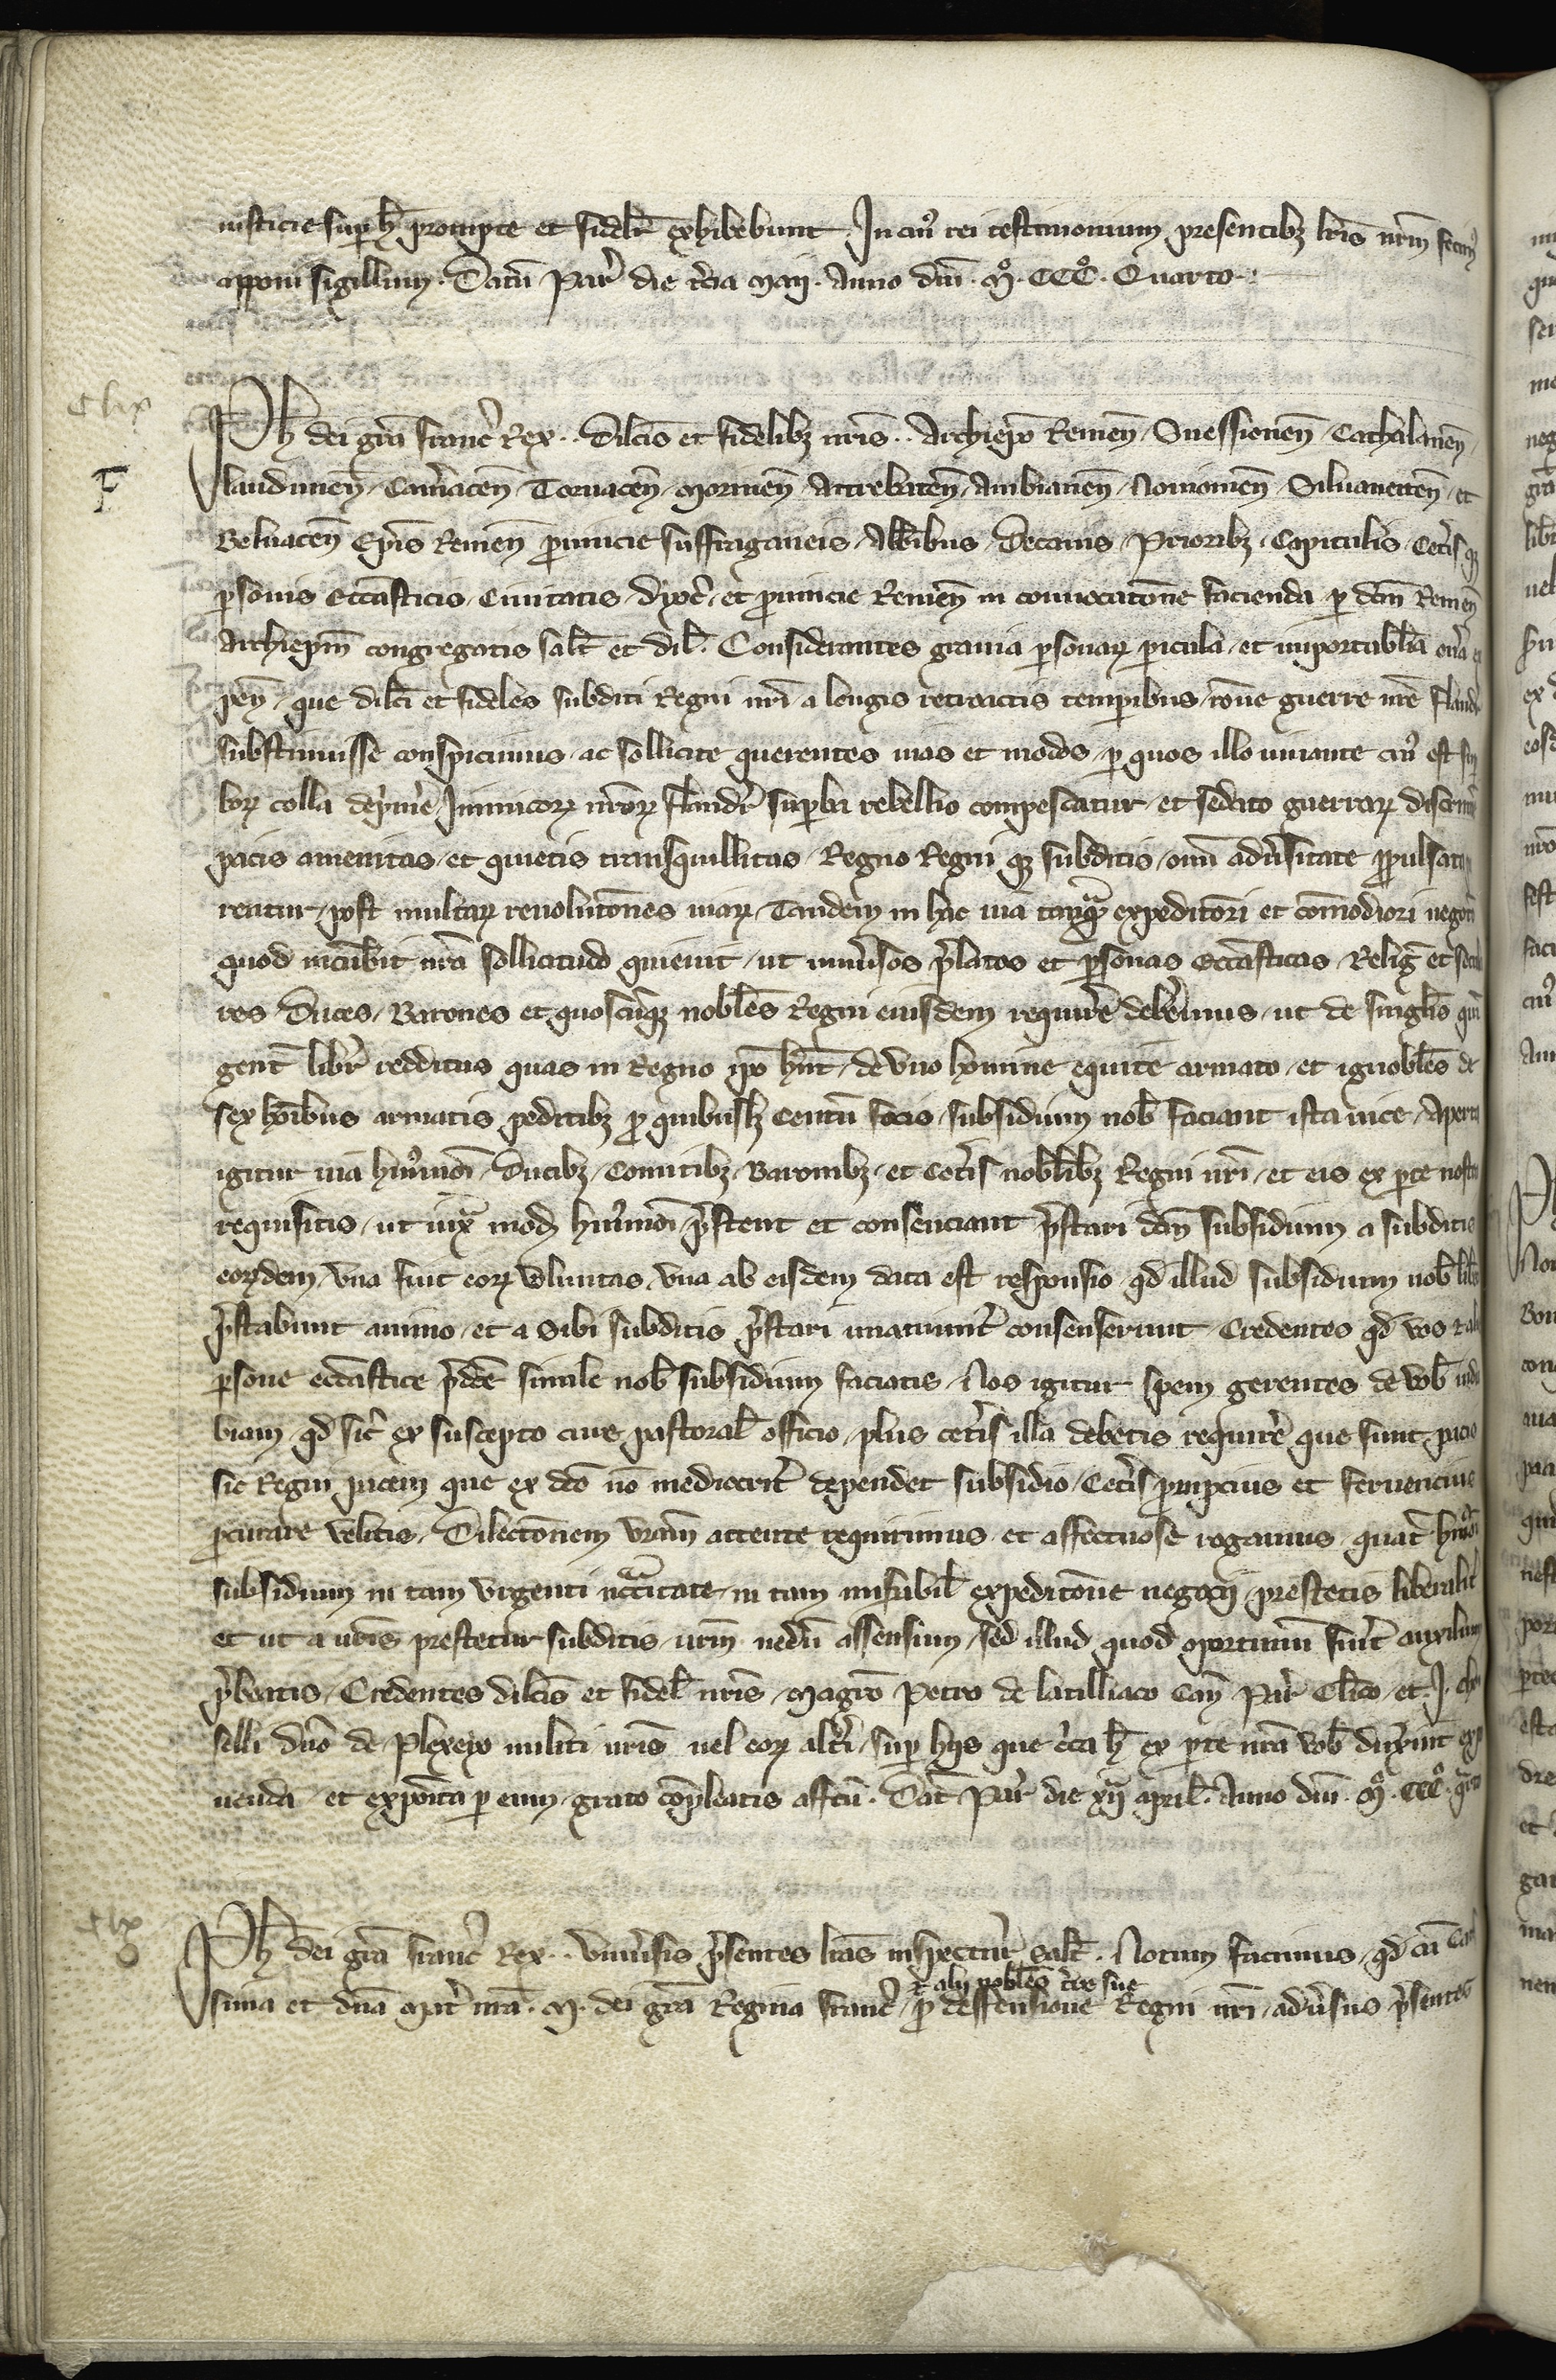 iusticie sup h̄ prompte et fidelr̄ exhibebunt. In cuiꝰ rei testimonium presentibꝫ lrīs nrm̄ fecimꝰ
apponi sigillum. Datū Parˀ die tˀcia Maij. Anno dnī. Mͦ. CCCͦ. Quarto.
Clix
F
Ph̄ dei grā francˀ Rex. . Dilcīs et fidelibꝫ nrīs. . Archiepō Remeñ, Suessioneñ, Cathalaneñ,
lauduneñ, Camˀaceñ, Tornaceñ, Morineñ, Attrebateñ, Ambianeñ, Nouiomeñ, Siluanecteñ, et
Beluaceñ Epīs Remeñ prouincie suffraganeis, Abb̄ibus, Decanis, Prioribꝫ, Capitulis, Cetˀis qꝫ
psonis eccāsticis, Ciuitatis, dyocˀ, et prouincie Remeñ in conuocatōne facienda p dcm̄ Remeñ
Archiepm̄ congregatis salt̄ et dil̄. Considerantes grauia psonaꝝ picula, et importabilīa onˀa
peñ, que dilcī et fideles subditi Regni nrī a longis retroactis temporibus, rōne guerre nrē Flandˀ
substinuisse conspicimus, ac sollicite querentes uias et modos, p quos illo iuuante cuiꝰ est supˀ
boꝝ colla depˀmˀe Inimicoꝝ nrōꝝ Flandrˀ supbi rebellio compescatur, et sedato guerraꝝ discrimˀe
pacis amenitas, et quietis transquillitas, Regno Regni qꝫ subditis, omī aduˀsitate propulsata
reatur, post multaꝝ reuolutōnes uiaꝝ, Tandem in hac uia tanqᵃm expeditiori et com̄odiori negocˀ
quod incūbit nrā sollicitudo quieuit, ut uniuˀsos pˀlatos et psonas eccāsticas, Religˀ et secula
res Duces, Barones et quoscūqꝫ nobl̄es Regni eiusdem requirˀe debˀemus, ut de singl̄is quin
gent̄ librˀ redditus quas in Regno ipō hn̄t, de vno homine equite armato, et ignobl̄es de
sex hōibus armatis peditibꝫ p quibusl̄ Centū focis, subsidium nob̄ faciant ista uice, Aperta
igitur uia huiꝰmōi, Ducibꝫ, Comitibꝫ, Baronibꝫ, et Cetˀis nobl̄ibꝫ Regni nrī, et eis ex pte nostra
requisitis, ut iuxᵃ modū huiꝰmōi, pˀstent et consenciant pˀstari dcm̄ subsidium a subditis
eoꝝdem, vna fuit eoꝝ voluntas, vna ab eisdem data est responsio, qd̄ illud subsidium nob̄ libˀo
pˀstabunt animo, et a sibi subditis pˀstari unanimitˀ consenserunt, Credentes qd̄ vos et alie
psone eccāstice pˀdcē simile nob̄ subsidium faciatis, Nos igitur spem gerentes de vob̄ indu
biam, qd̄ sicˀ ex suscepto cure pastoral̄ officio, plus cetˀis illa debetis requirˀe que sunt pacis
sic Regni pacem que ex dcō nō mediocritˀ dependet subsidio, Cetˀis prompcius et feruencius
pcurare velitis, Dilectōnem vrām attente requirimus, et affectuose rogamus, quatˀ huiꝰmōi
subsidium in tam vrgenti nccᵃitate, in tam miserabil̄ expeditōne negocij, prestetis liberalitˀ
et ut a vrīs prestetur subditis, vrm̄ nedū assensum, sed illud quod oportunū fuˀit auxilium
pˀbeatis, Credentes dilcīs et fidel̄ nrīs, Magrō Petro de latilliaco Cañ Parˀ Clˀico, et J. Chˀ
selli dnō de Plexeyo militi nrīs uel eoꝝ altˀi, sup hijs que cˀca h̄ ex pte nrā vob̄ duxˀint expo
nenda, et exposita p eum, grato cōpleatis affcū. Dat̄ Parˀ die xijᵃ aprilˀ. Anno dnī. Mͦ. CCCͦ. qᵃrto
Clx
Ph̄ dei grā francˀ Rex. . Vniuˀsis pˀsentes lrās inspecturˀ salt̄. Notum facimus, qd̄ cū Caris
et alij nobl̄es tˀre sue
sima et dnā Matˀ nrā. M. dei grā Regina francˀ, p deffensione Regni nrī, aduˀsus pˀsentes